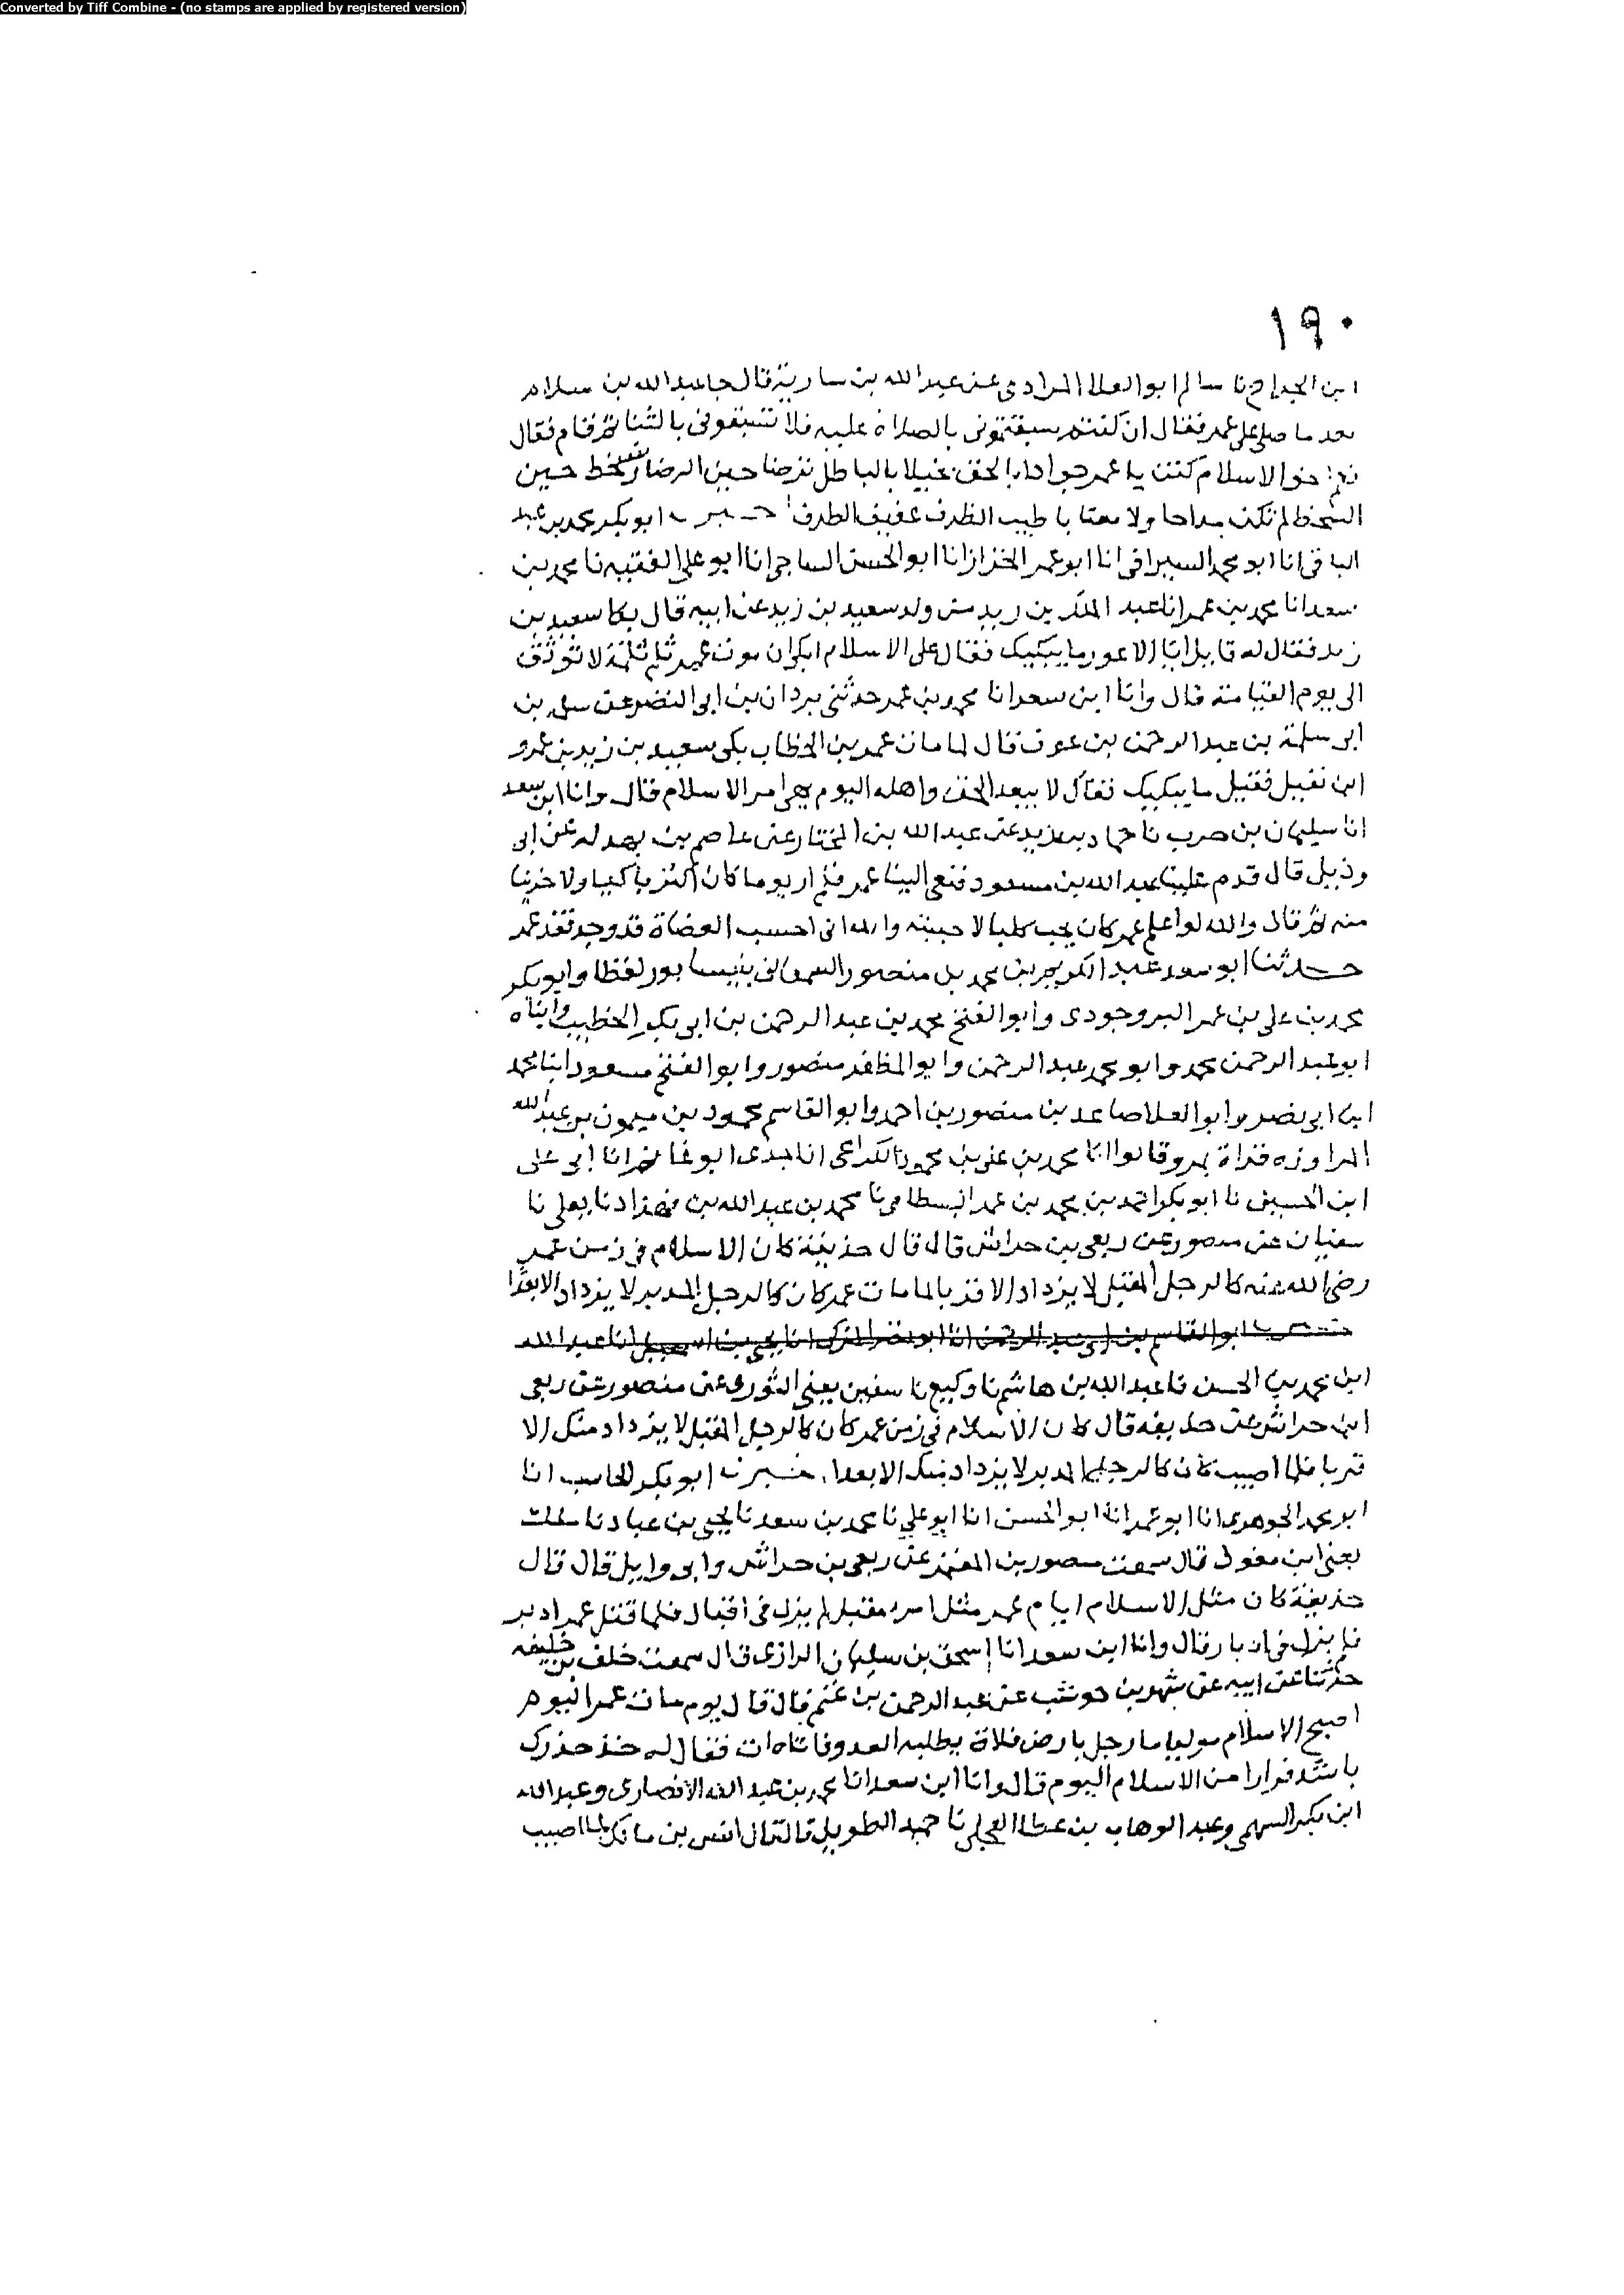 Converted by Tiff Combine - (no stamps are applied by registered version)
١٩٠
ابن الجراح نا سالم ابو العلا المرادى عن عبد الله بن سارية قال جا عبد الله بن سلام
بعد ما صلى على عمر فقال ان كنتم سبقتمونى بالصلاة عليه فلا تسبقونى بالثنا ثم قام فقال
نعم اخو الاسلام كنت يا عمر جوادا بالحق بخيلا بالباطل ترضا حين الرضا وتسخط حين
السخط لم تكن مداحا ولا معتابا طيب الظرف عفيف الطرف اخبرنا ابو بكر محمد بن عبد
الباقى انا ابو محمد السيرافى انا ابو عمر الخزاز انا ابو الحسن الساجى انا ابو على الفقيه نا محمد بن
سعد انا محمد بن عمر انا عبد الملك بن زيد من ولد سعيد بن زيد عن ابيه قال بكا سعيد بن
زيد فقال له قايل ابا الاعور ما يبكيك فقال على الاسلام ابكى ان موت عمر ثلم ثلمة لا ترتق
الى يوم القيامة قال وانا ابن سعد انا محمد بن عمر حدثنى بردان بن ابى النضر عن سلمة بن
ابى سلمة بن عبد الرحمن بن عوف قال لما مات عمر بن الخطاب بكى سعيد بن زيد بن عمرو
ابن نفيل فقيل ما يبكيك فقال لا يبعد الحق واهله اليوم يهى امر الاسلام قال وانا ابن سعد
انا سليمان بن حرب نا حماد بن زيد عن عبد الله بن المختار عن عاصم بن بهدلة عن ابى
وذيل قال قدم علينا عبد الله بن مسعود فنعى الينا عمر فلم ار يوما كان اكثر باكيا ولا حزينا
منه ثم قال والله لو اعلم عمر كان يحب كلبا لاحببته والله انى احسب العضاة قد وجد فقد عمر
حدثنا ابو سعد عبد الكريم بن محمد بن منصور السمعانى بنيسابور لفظا وابو بكر
محمد بن على بن عمر البروجودى وابو الفتح محمد بن عبد الرحمن بن ابى بكر الخطيب وابناه
ابو عبد الرحمن محمد وابو محمد عبد الرحمن وابو المظفر منصور وابو الفتح مسعود ابنا محمد
ابن ابى نصر وابو العلا صاعد بن منصور بن احمد وابو القاسم محمود بن ميمون بن عبد الله
المراوزه قراة بمرو قالوا انا محمد بن على بن محمود الكراعى انا جدى ابو غانم انا ابى على
ابن الحسين نا ابو بكر احمد بن محمد بن عمر البسطامى نا محمد بن عبد الله بن قهزاد نا يعلى نا
سفيان عن منصور عن ربعى بن حراش قال قال حذيفة كان الاسلام فى زمن عمر
رضى الله عنه كالرجل المقبل لا يزداد الا قربا لما مات عمر كان كالرجل المدبر لا يزداد الا بعدًا
اخبرنا ابو القاسم بن ابى عبد الرحمن انا ابو نصر المزكى انا يحيى بن اسمعيل انا عبد الله
ابن محمد بن الحسن نا عبد الله بن هاشم نا وكيع نا سفين يعنى الثورى عن منصور عن ربعى
ابن حراش عن حذيفه قال كان الاسلام فى زمن عمر كان كالرجل المقبل لا يزداد منك الا
قربا فلما اصيب كان كالرجل المدبر لا يزداد منك الا بعدا. اخبرنا ابو بكر الحاسب انا
ابو محمد الجوهرى انا ابو عمر انا ابو الحسن انا ابو على نا محمد بن سعد نا يحيى بن عباد نا ملك
يعنى ابن مغول قال سمعت منصور بن المعتمر عن ربعى بن حراش وابو وايل قال قال
حذيفة كان مثل الاسلام ايام عمر مثل امرء مقبل لم يزل فى اقبال فلما قتل عمر ادبر
فلم يزل فى ادبار قال وانا ابن سعد انا اسحق بن سليمان الرازى قال سمعت خلف بن خليفه
حدثنا عن ابيه عن شهر بن حوشب عن عبد الرحمن بن غنم قال قال يوم مات عمر اليوم
اصبح الاسلام موليا ما رجل بارض فلاة يطلبه العدو فاتاه ات فقال له خذ حذرك
باشد فرارا من الاسلام اليوم قال وانا ابن سعد انا محمد بن عبد الله الانصارى وعبد الله
ابن بكر السهمى وعبد الوهاب بن عطا العجلى نا حميد الطويل قال قال انس بن مالك لما اصيب